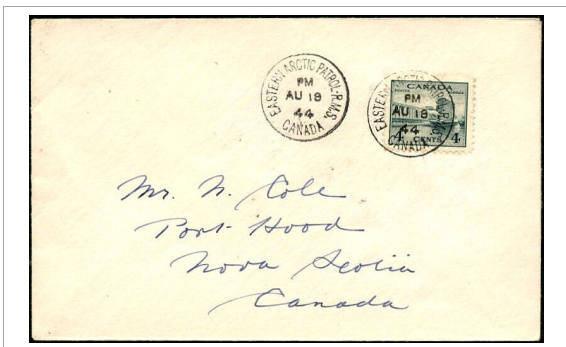 EASTERN ARCTIC PATROL·R.M.S.
PM
AU 18
44
CANADA
EASTERN ARCTIC PATROL·R.M.S.
PM
AU 18
44
CANADA
CANADA
4 CENTS 4
Mr. N. Cole
Port Hood
Nova Scotia
Canada